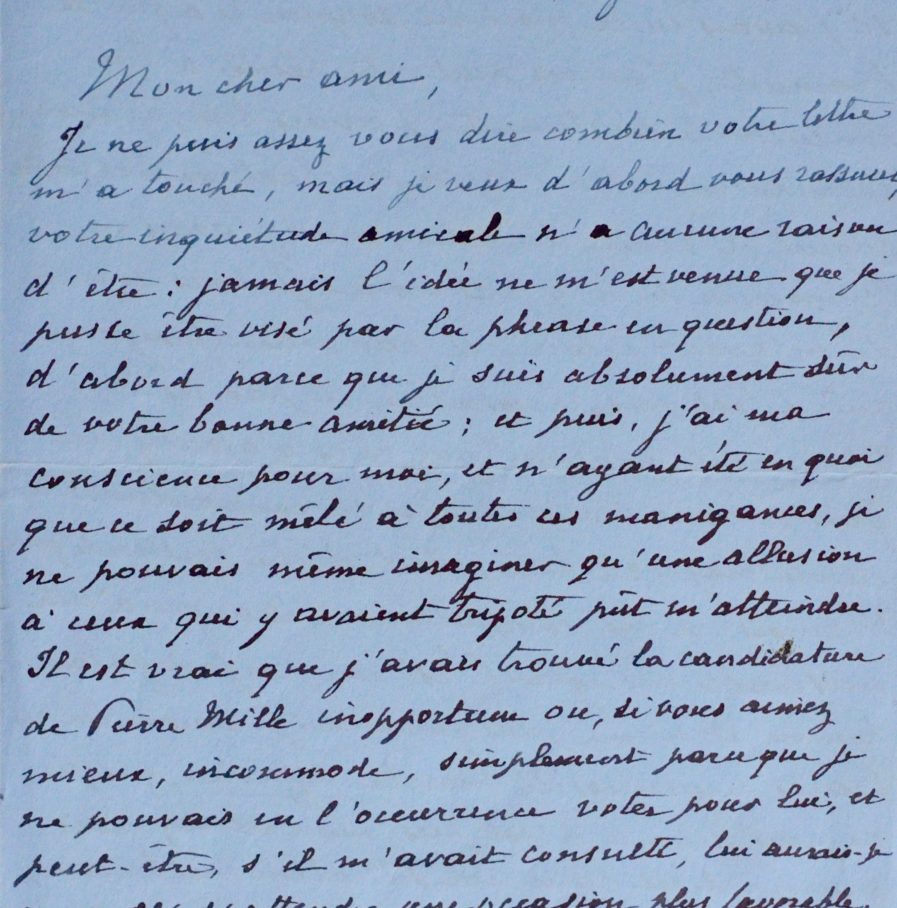 Mon cher ami,
Je ne puis assez vous dire combien votre lettre
m'a touché, mais je veux d'abord vous rassurer,
votre inquiétude amicale n'a aucune raison
d'être : jamais l'idée ne m'est venue que je
pusse être visé par la phrase en question,
d'abord parce que je suis absolument sûr
de votre bonne amitié ; et puis, j'ai ma
conscience pour moi, et n'ayant été en quoi
que ce soit mêlé à toutes ces manigances, je
ne pouvais même imaginer qu'une allusion
à ceux qui y avaient tripoté pût m'atteindre.
Il est vrai que j'avais trouvé la candidature
de Pierre Mille inopportune ou, si vous aimez
mieux, incommode, simplement parce que je
ne pouvais en l'occurrence voter pour lui, et
peut-être, s'il m'avait consulté, lui aurais-je
une occasion plus favorable